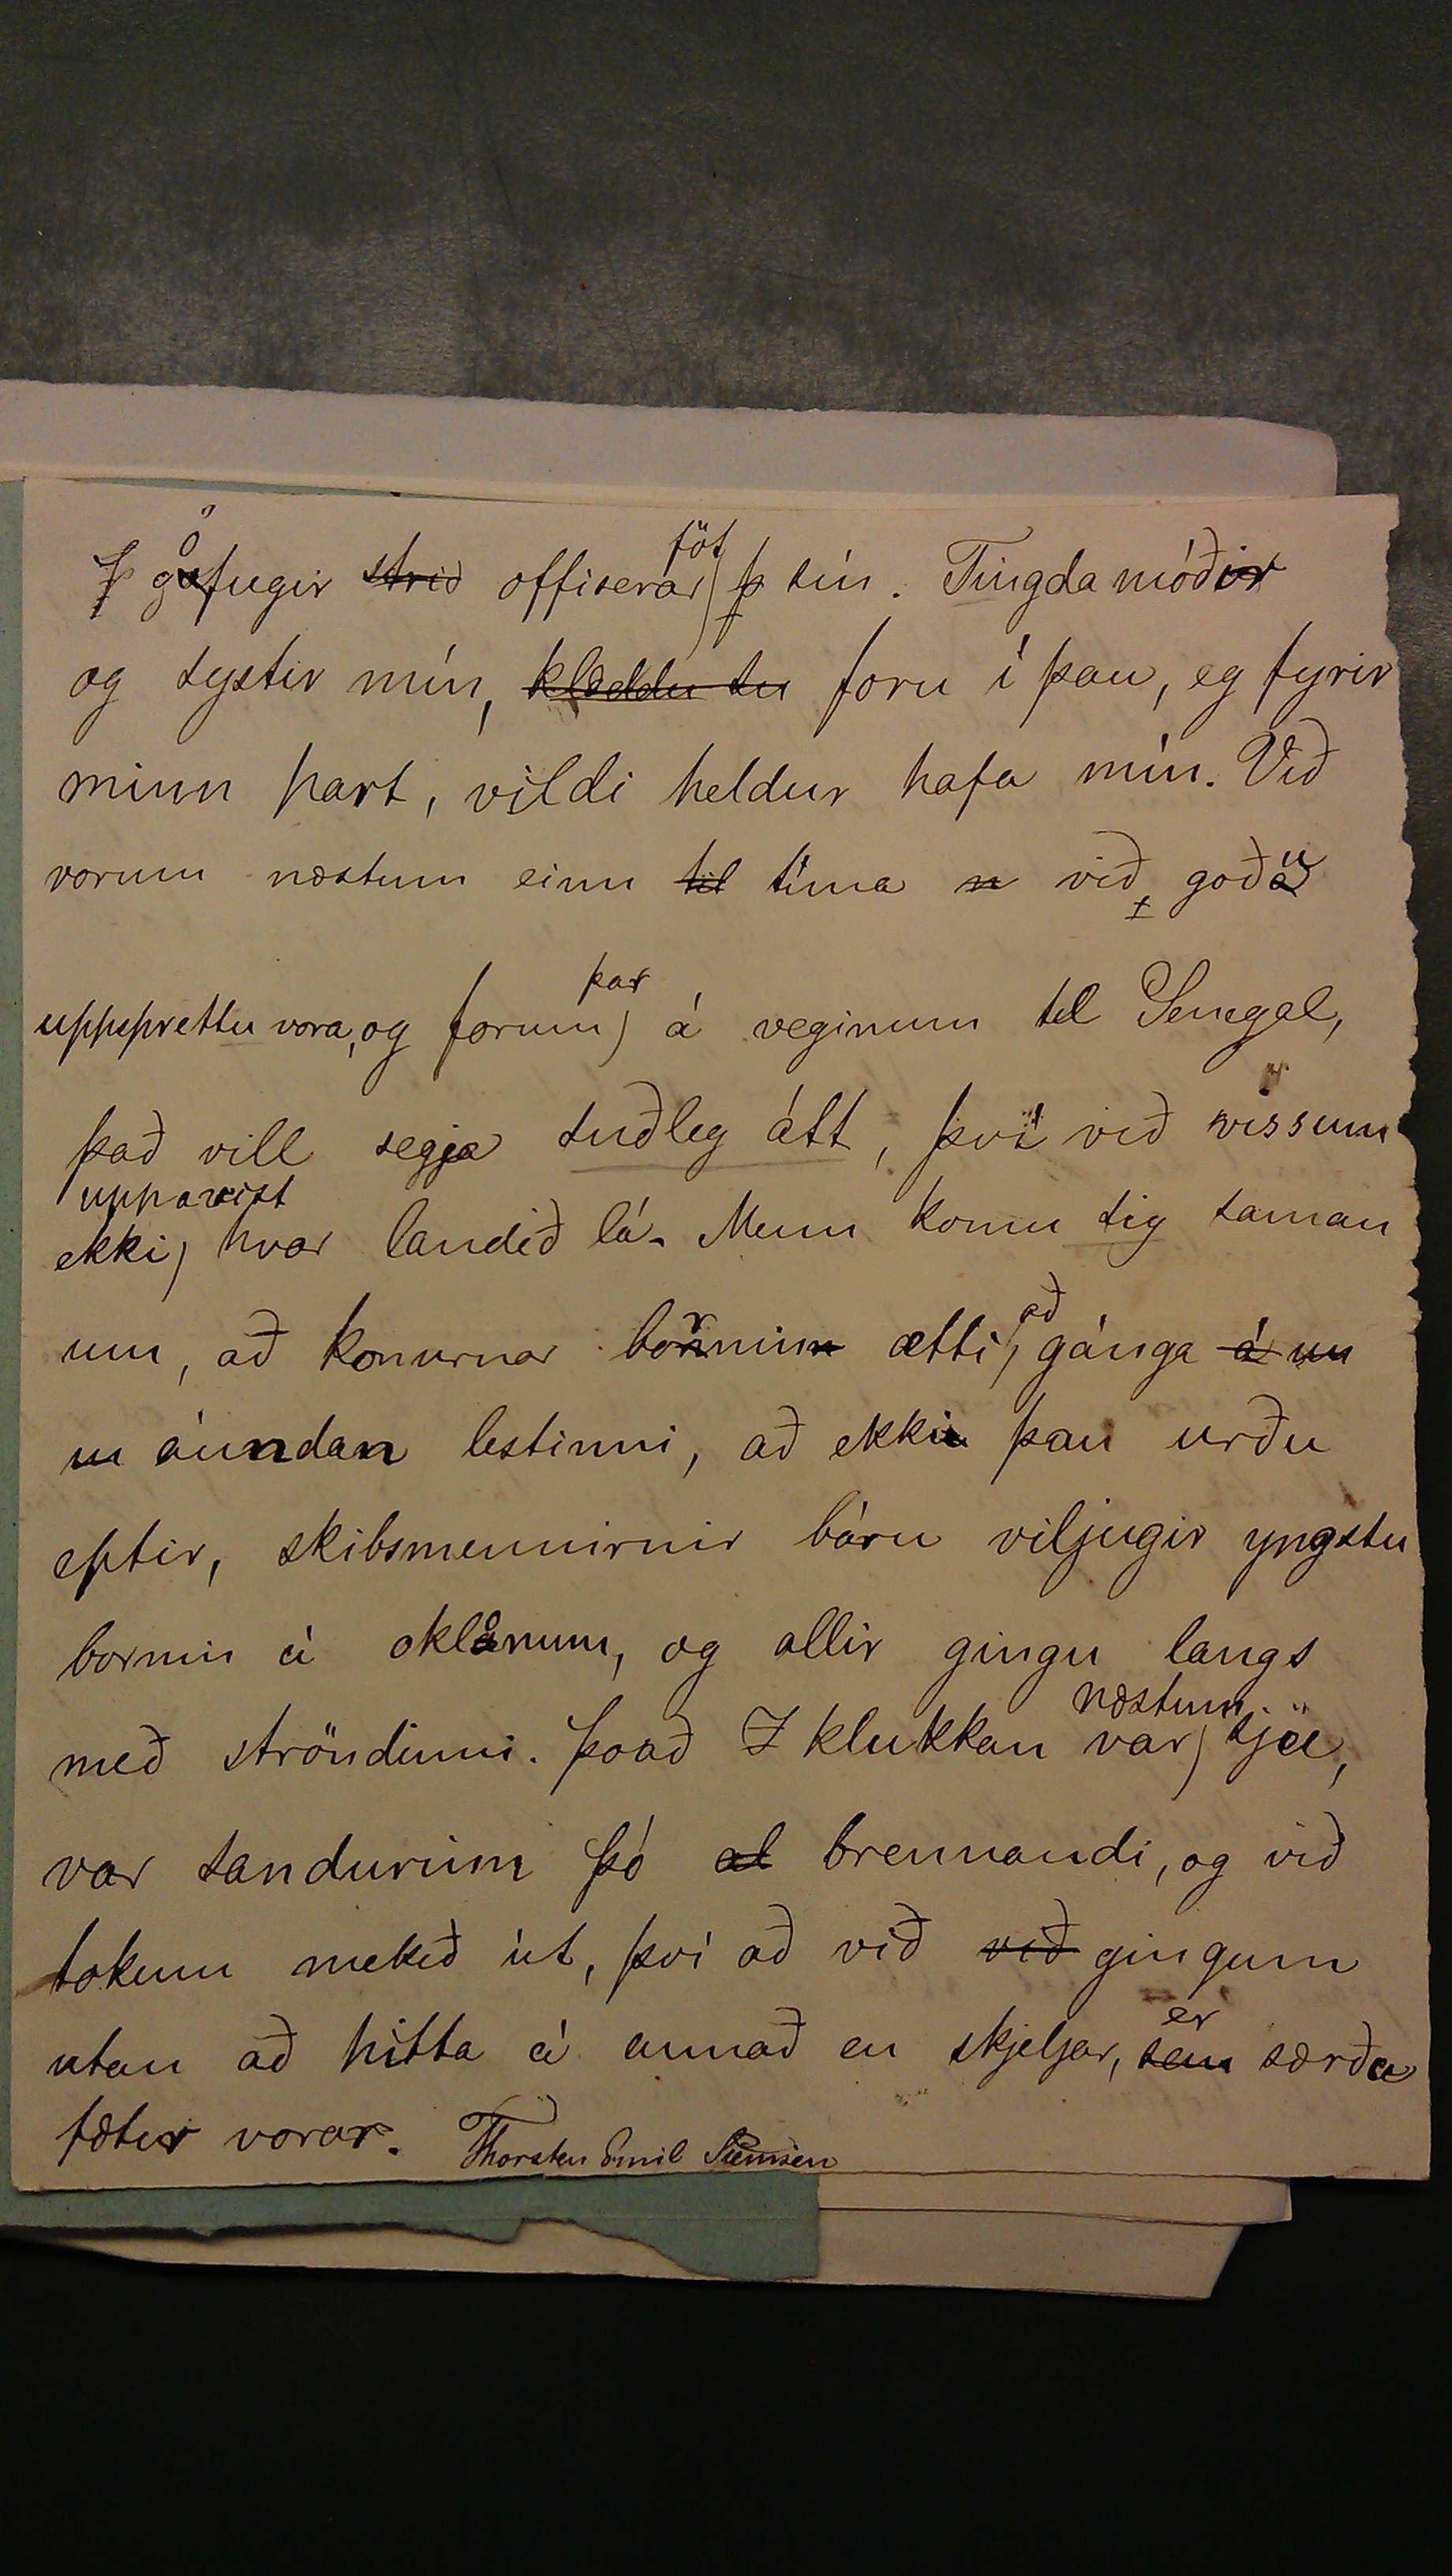 göfugir strið offiserar föt þ sín. Tingda móðir
og systir mín, klæddu su foru í þau, eg fyrir
minn part, vildi heldur hafa mín. Við
vorum næstum einn til tíma n við goðu
uppsprettu vora, og forum þar á veginum til Senegal,
það vill segja suðleg átt, því við vissum
ekki uppavist hvar landið lá. Menn komu sig saman
um, að konurnar bornin ætti að gánga á un
u áundan lestinni, að ekki þau urðu
eptir, skibsmennirnir báru viljugir yngstu
bornin á oklånum, og allir gingu langs
með ströndinni. Þoað klukkan var næstum sjö,
var sandurinn þó al brennandi, og við
tokum mekið út, því að við við gingum
utan að hitta á annað en skjeljar, sem er særðu
fætur vorar. Thorsten Emil Siemsen